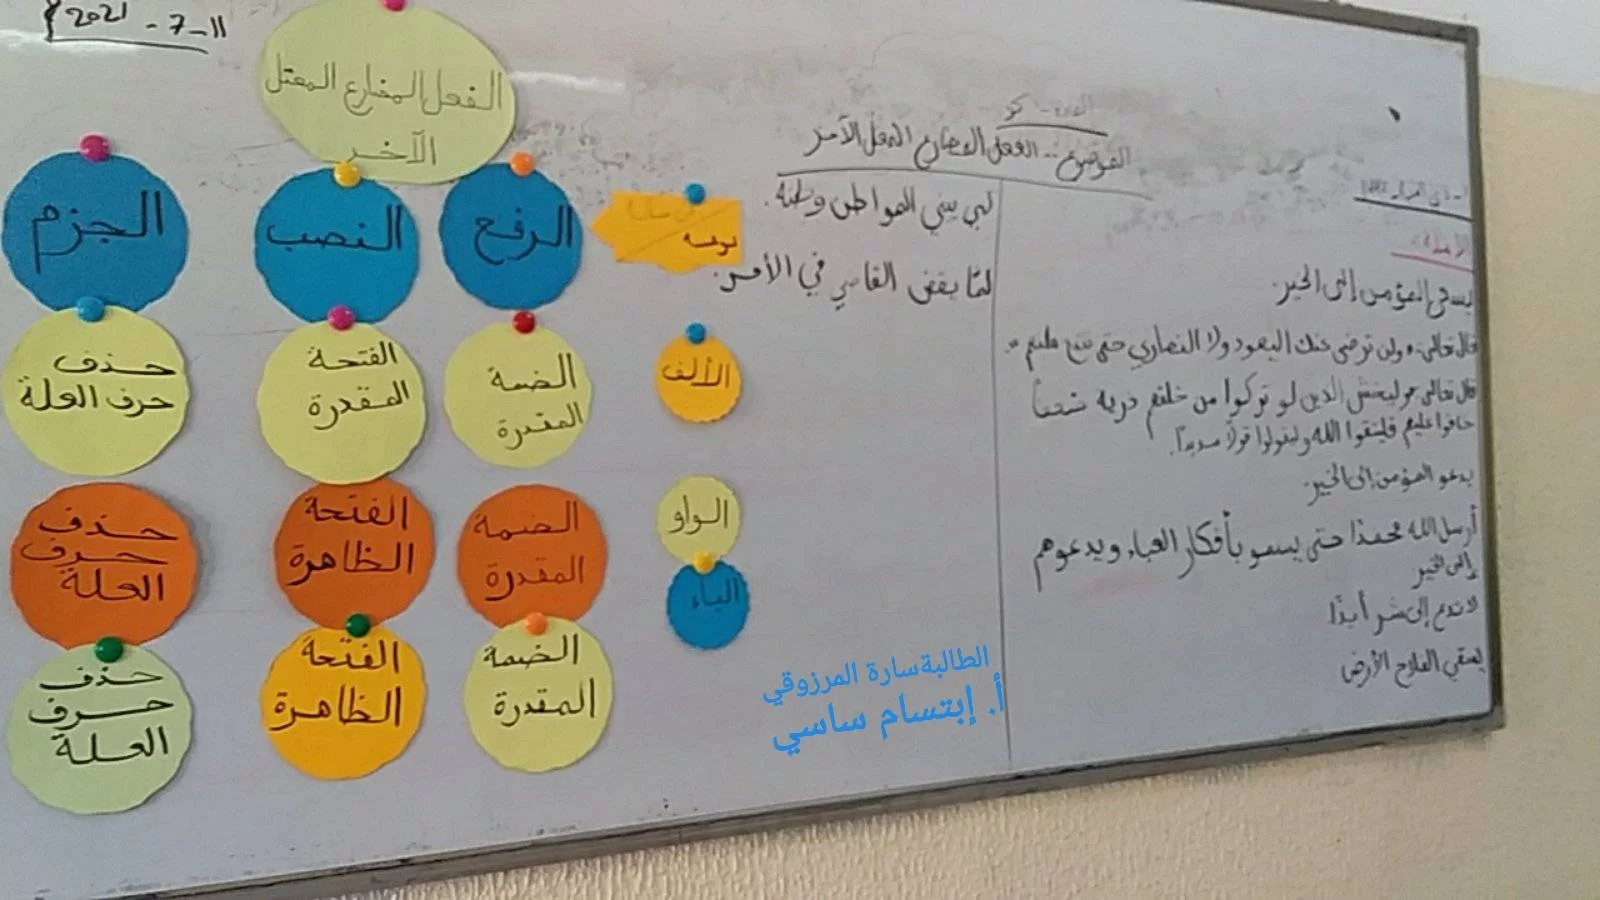 11-7-2021
الفعل المضارع المعتل
الآخر
الرفع
النصب
الجزم
الألف
الضمة
المقدرة
الفتحة
المقدرة
حذف
حرف العلة
الواو
الضمة
المقدرة
الفتحة
الظاهرة
حذف
حرف
العلة
الياء
الضمة
المقدرة
الفتحة
الظاهرة
حذف
حرف
العلة
الموضوع: الفعل المضارع المعتل الآخر
الأمثلة:
يسعى المؤمن إلى الخير.
قال تعالى: ولن ترضى عنك اليهود ولا النصارى حتى تتبع ملتهم
قال تعالى وليخش الذين لو تركوا من خلفهم ذرية ضعافا
خافوا عليهم فليتقوا الله وليقولوا قولًا سديدًا.
يدعو المؤمن إلى الخير.
أرسل الله محمدًا حتى يسمو بأفكار العباد ويدعوهم
إلى الخير
لا تدع إلى شر أبدًا.
يسقي الفلاح الأرض
لكي يبني المواطن وطنه.
لمّا يقض القاضي في الأمر.
الطالبة سارة المرزوقي
أ. إبتسام ساسي